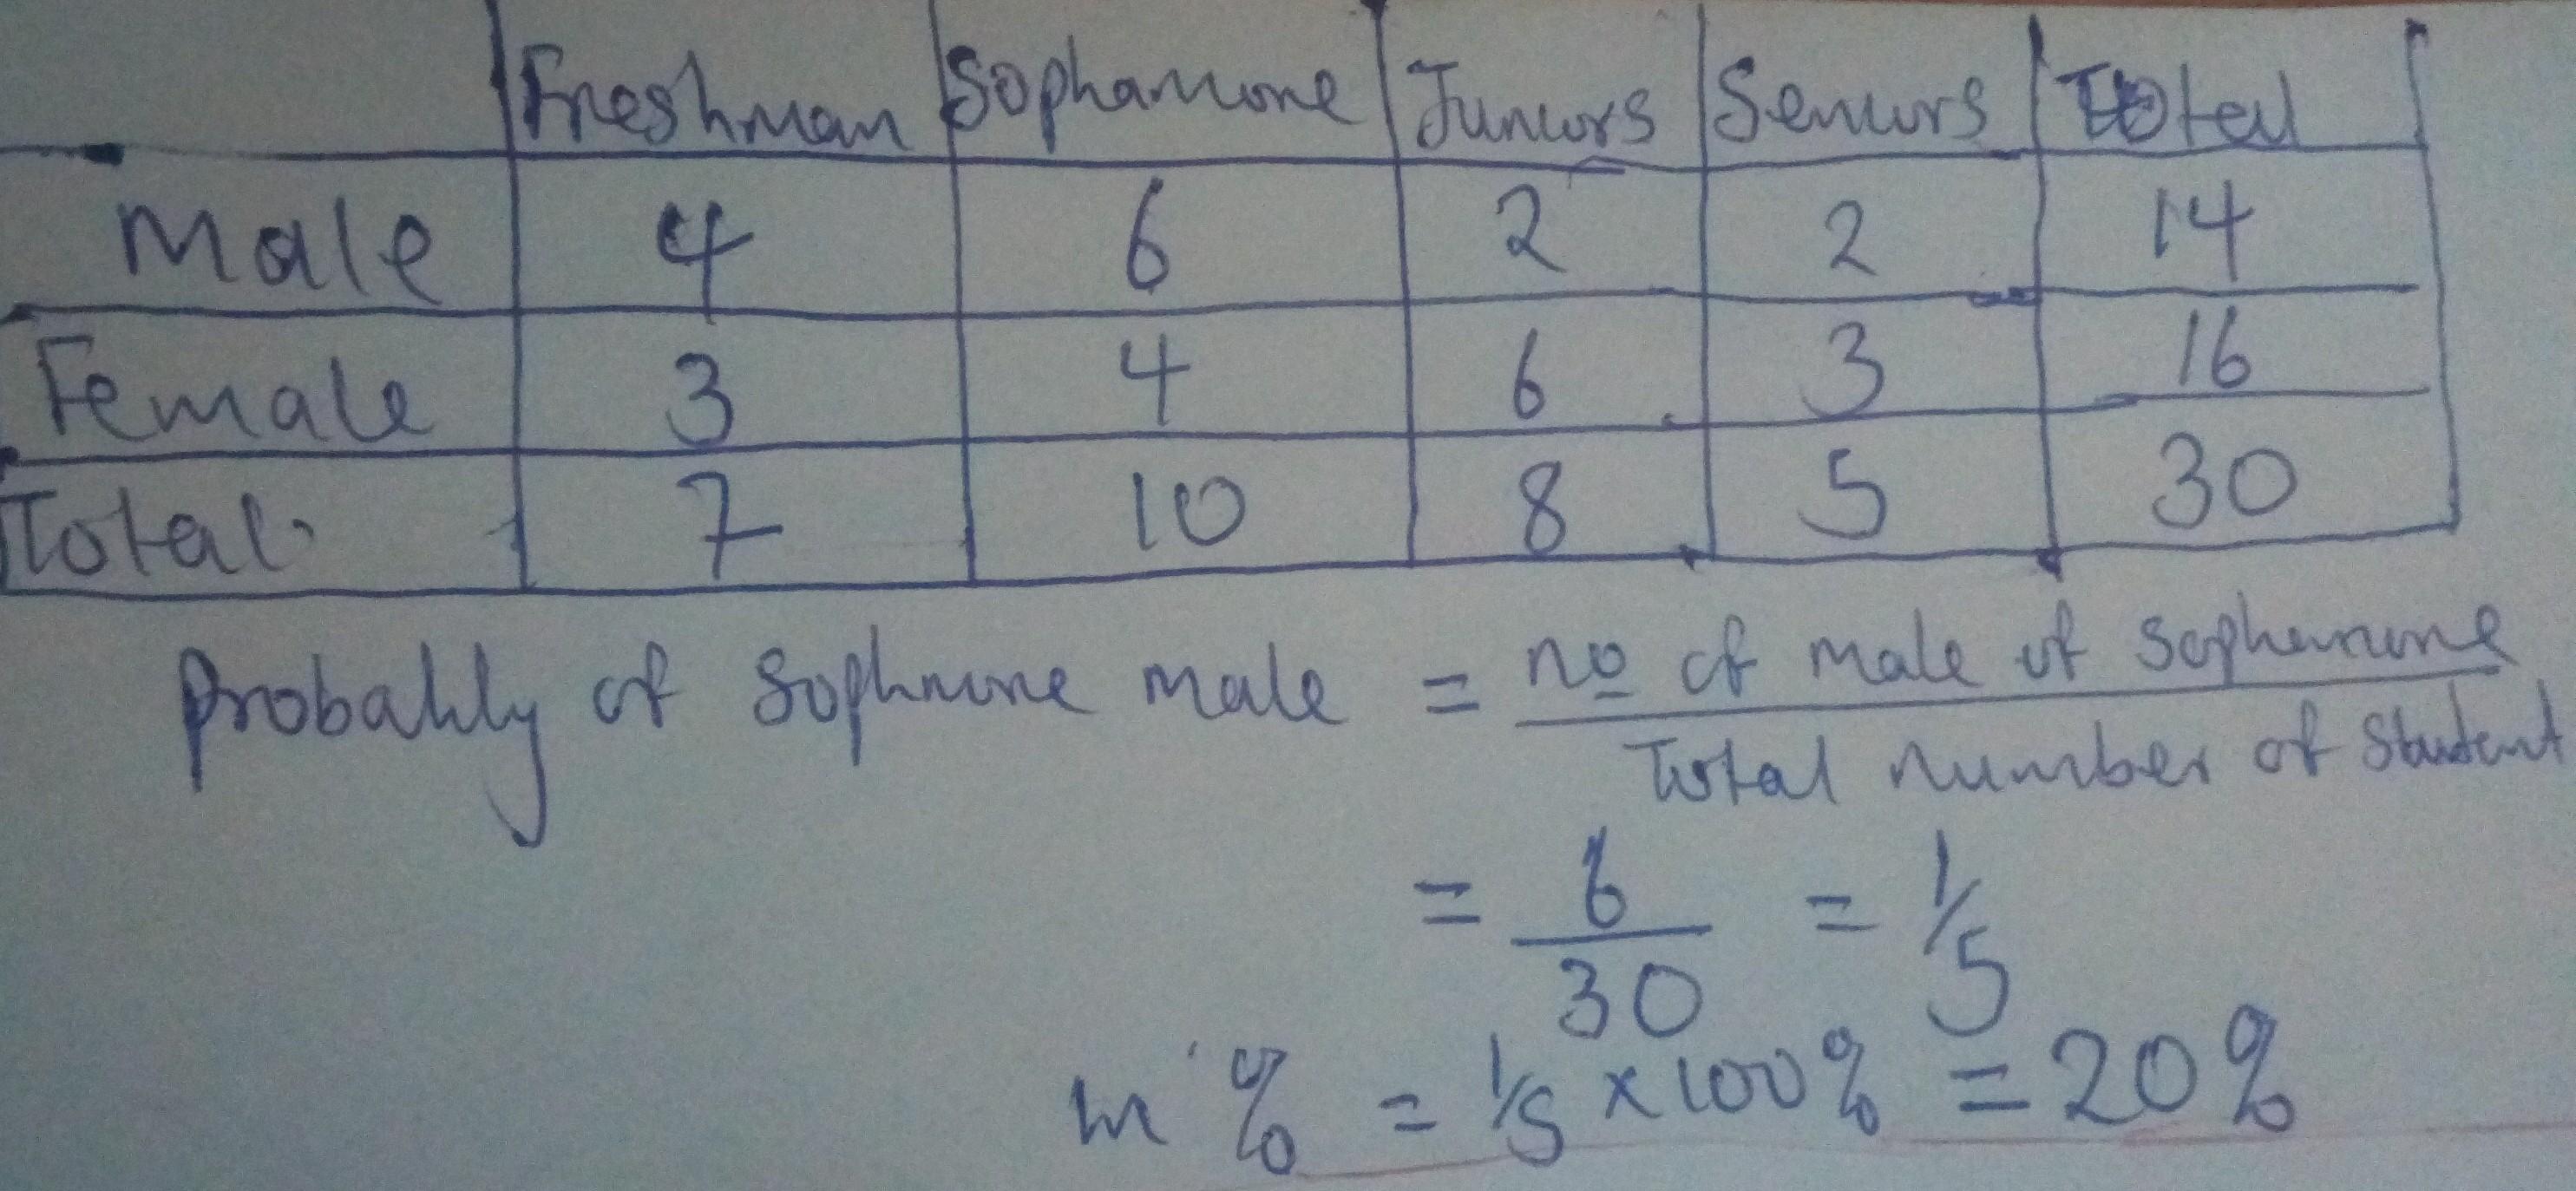 Freshman Sophamone Juniors Seniors Total
Male 4 6 2 2 14
Female 3 4 6 3 16
Total. 7 10 8 5 30
Probably of Sophmone male = no of male of Sophamone
Total number of Student
= 6/30 = 1/5
in % = 1/5 x 100% = 20%